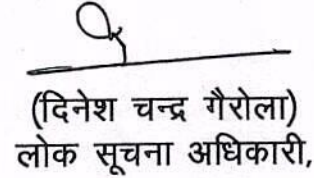 (दिनेश चन्द्र गैरोला)
लोक सूचना अधिकारी,